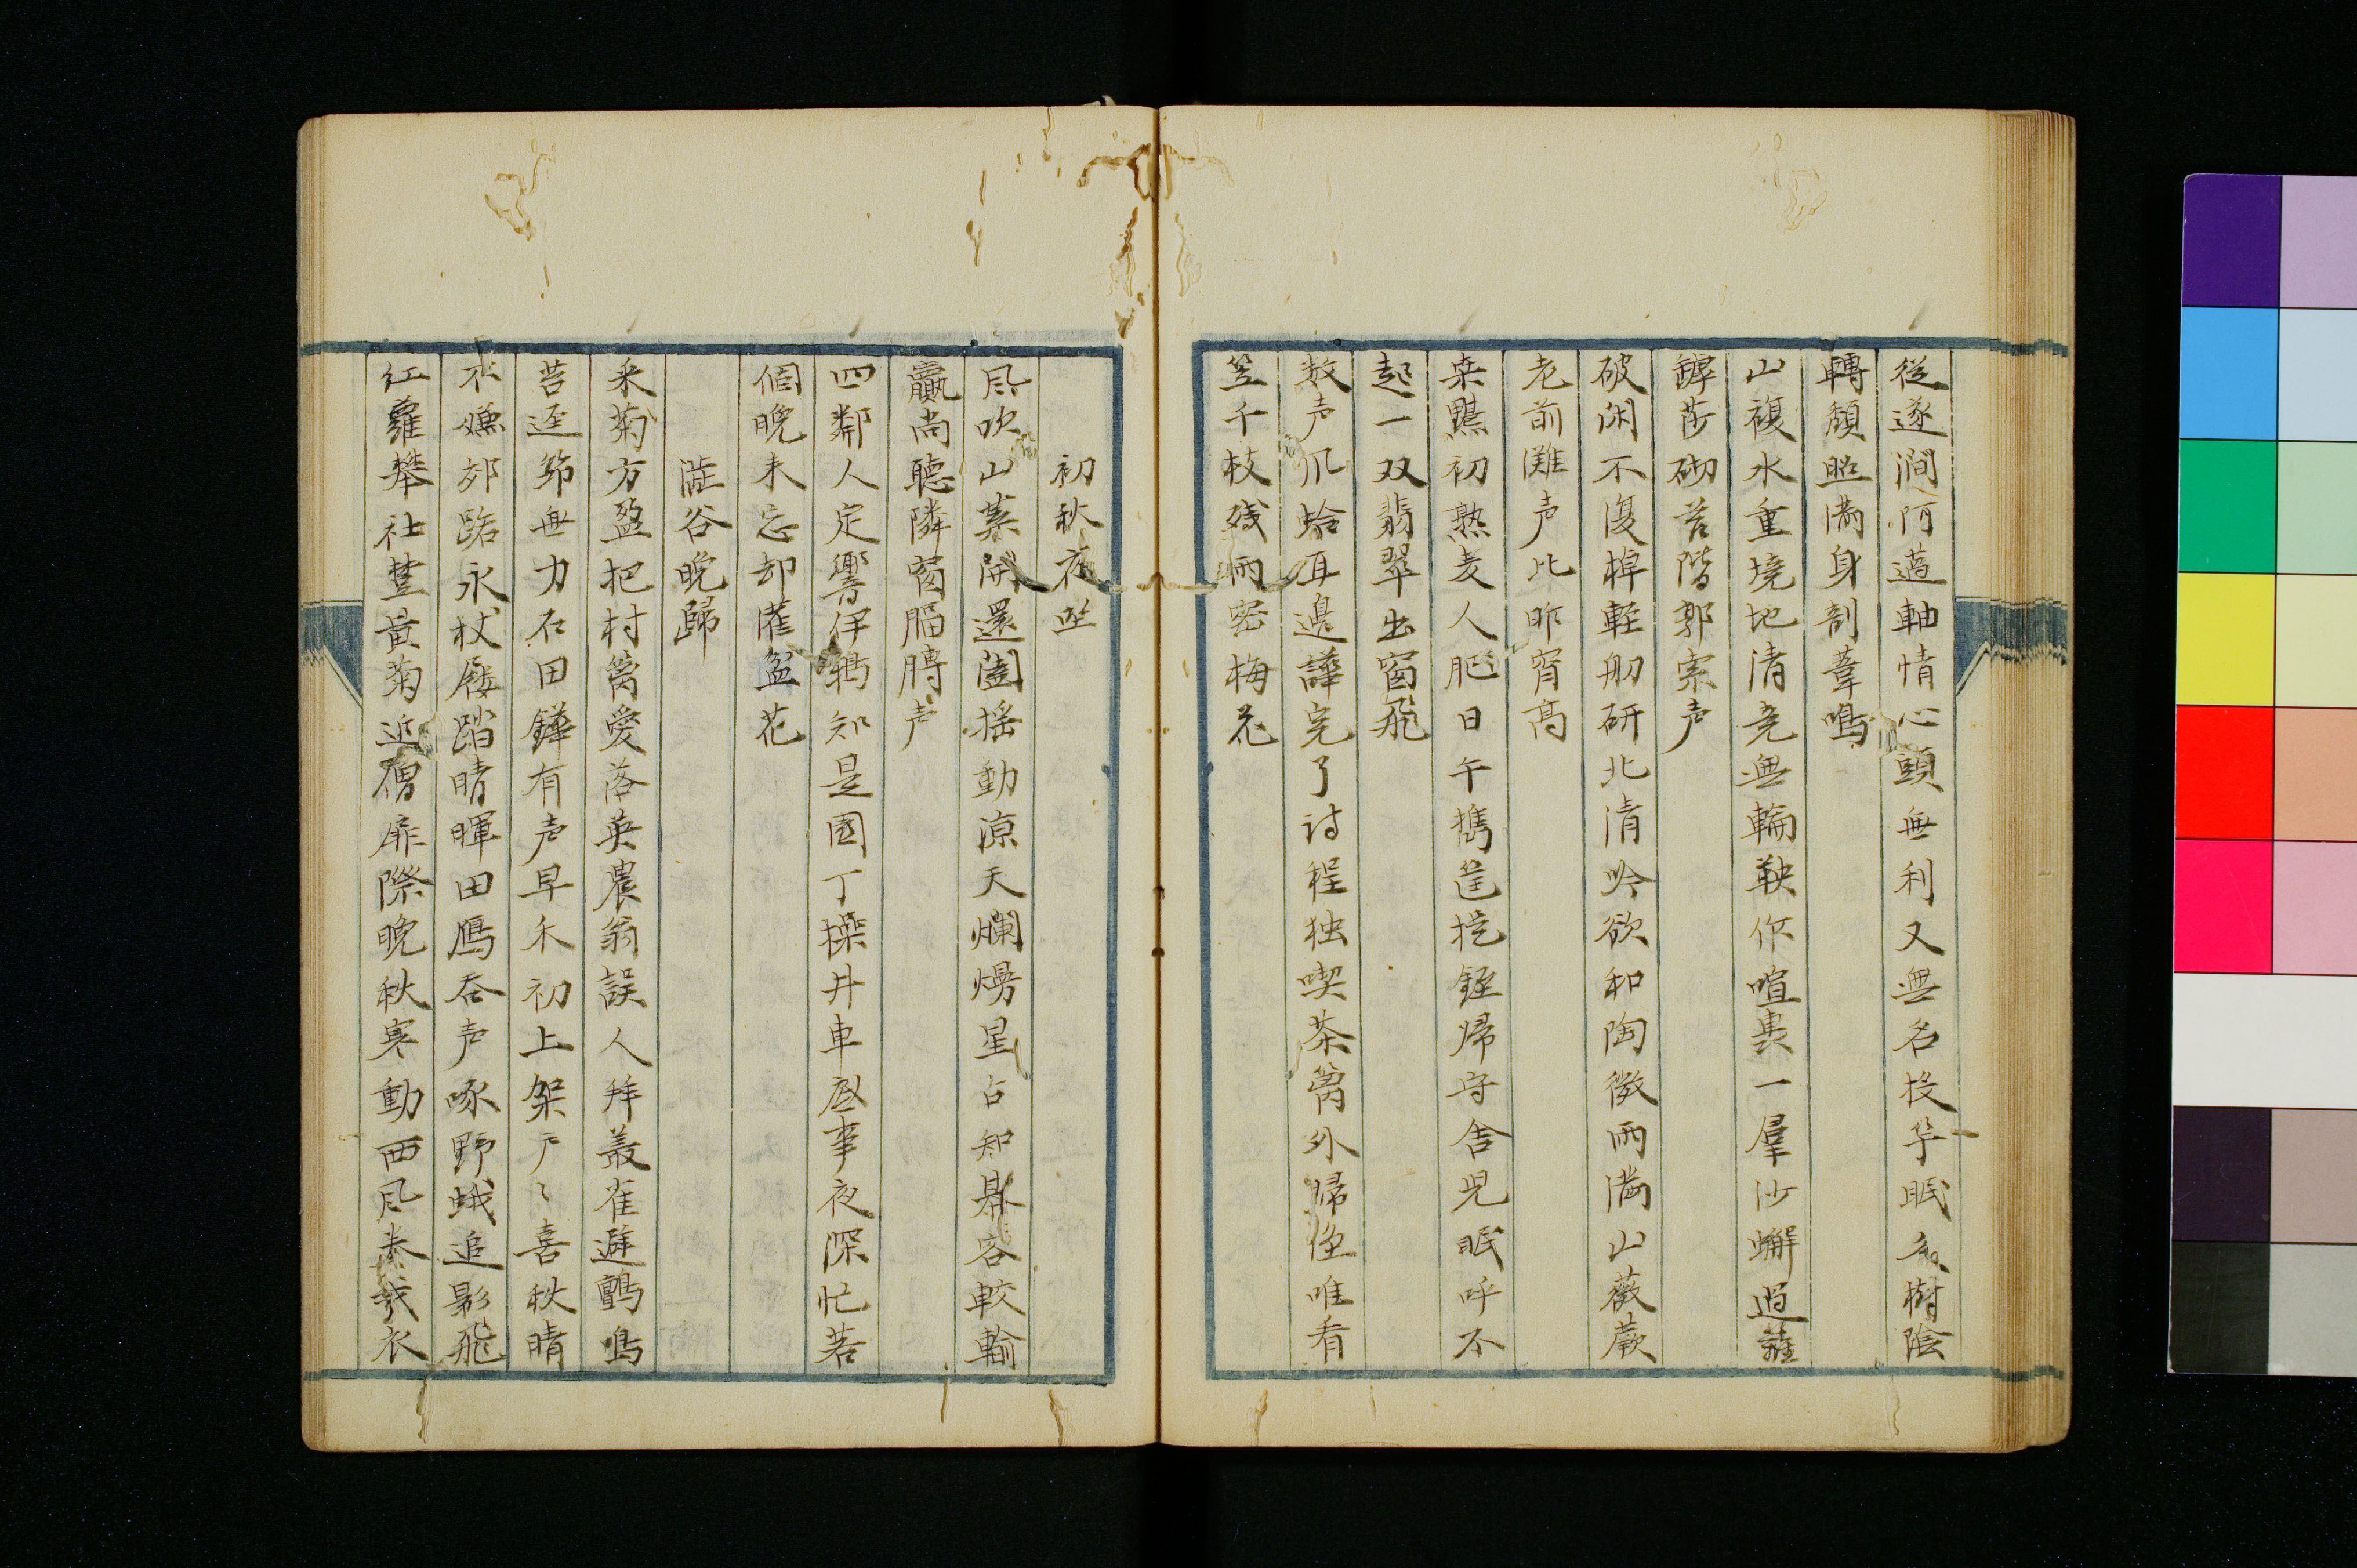 從遂澗阿薖軸情心頭無利又無名投竿眠熟樹陰
轉頽照満身剖葦鳴
山複水重境地清竟無輪鞅作喧豗一羣沙蠏過籬
罅莎砌苔階郭索声
破閑不復棹軽舠研北清吟欲和陶微雨満山薇蕨
老前灘声比昨宵高
桒黮初熟麦人肥日午携筐挖銍帰守舎児眠呼不
起一双翡翠出窗飛
数声爪蛤耳邊譁完了詩程独喫茶篱外帰僮唯看
笠千枝残雨密梅花
初秋夜坐
風吹山葉開還闔揺動凉天爛熳星占知棊客較輸
贏尚聴隣窗腷膊声
四鄰人定響伊鴉知是園丁操井車底事夜深忙若
個晩来忘却灌盆花
澁谷晩歸
采菊方盈把村篱愛落英農翁誤人拜叢雀避鸇鳴
苔逕筇無力石田鏵有声早禾初上架戸〻喜秋晴
不嫌郊路永杖屦踏晴暉田鴈呑声啄野蛾追影飛
紅蘿攀社埜黄菊近僧扉際晩秋寒動西風奏我衣